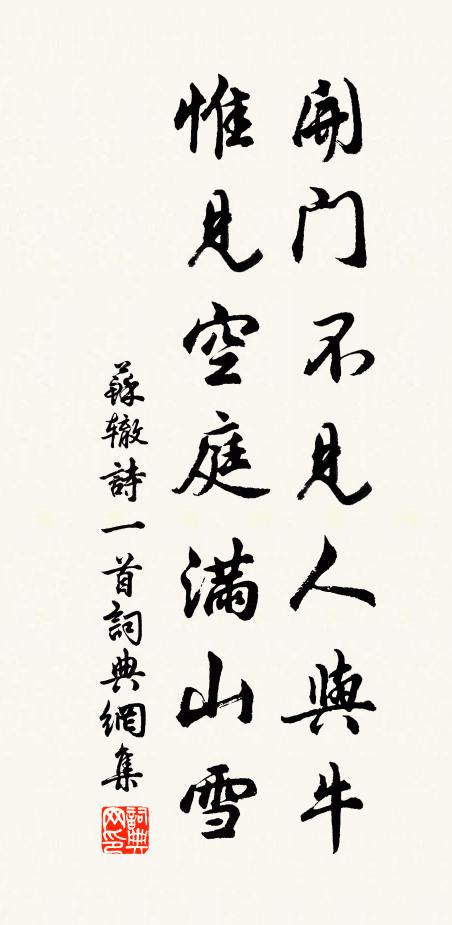 開門不見人與牛
惟見空庭滿山雪
蘇轍詩一首詞典網集
詞典
网印